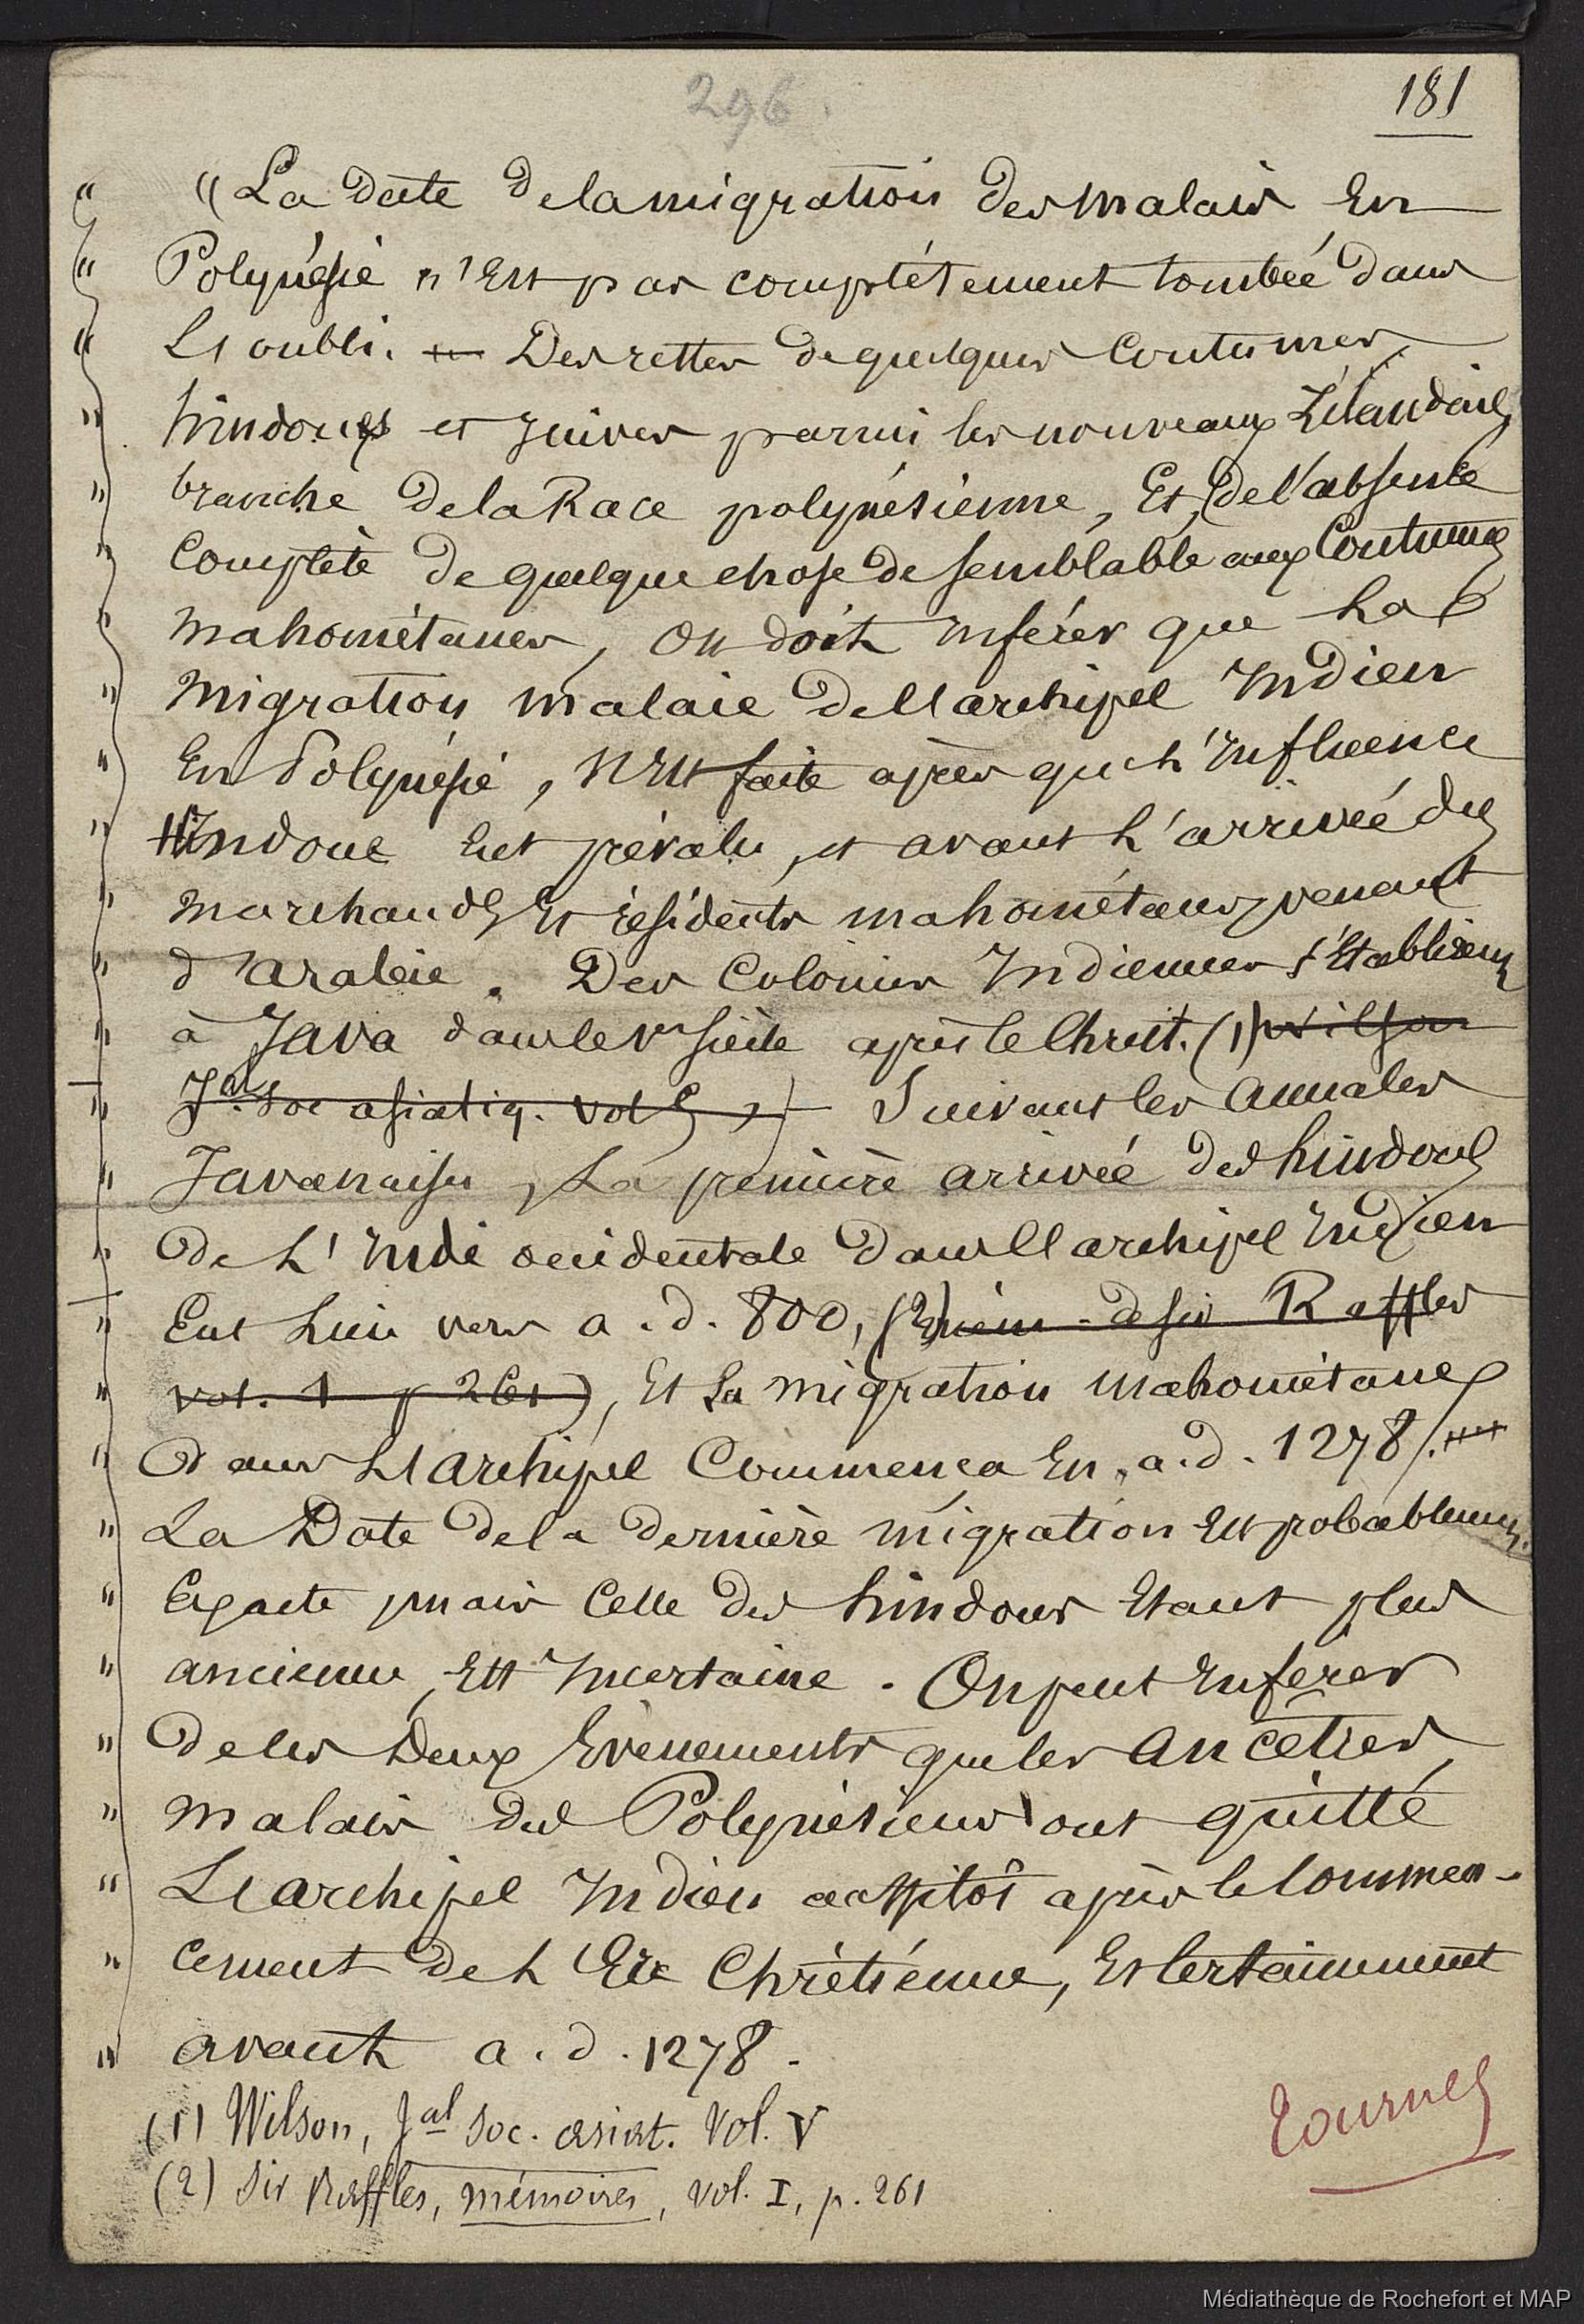 296
181
" La Date de la migration des malais En
" Polynésie n'Est pas complétement tombée dans
" L'oubli. Des restes de quelques Coutumes
" hindoues et juives parmi les nouveaux Zélandais,
" branche de la Race polynésienne, Et de l'absence
" Complète de quelque chose de semblable aux Coutumes
" mahométanes, on doit inférer que La
" migration malaie de l'archipel Indien
" En Polynésie, s'Est faite après que L'Influence
" Hindoue Eut prévalu, et avant L'arrivée des
" marchands Et résidents mahométans venant
" d'arabie. Des Colonies Indiennes s'Etablirent
" à Java dans le Vme siècle après le Christ. (1) Wilson
" Jal. Soc asiatiq. vol 5) Suivant les annales
" Javanaises, La première arrivée des hindous
" de L'Inde occidentale dans l'archipel Indien
" Eut Lieu vers a. d. 800, (2) mém. de sir Raffles
" vol. 1 p 261), Et La migration mahométane
" dans L'archipel Commença En a. d. 1278.
" La Date de la dernière migration Est probablement
" Exacte, mais Celle des hindous Etant plus
" ancienne, Est Incertaine. On peut Inférer
" de ces deux Evènements que les ancêtres
" malais des Polynésiens ont quitté
" L'archipel Indien aussitôt après le Commen-
" cement de L'Ere Chrétienne, Et Certainement
" avant a. d. 1278.
(1) Wilson, Jal Soc. asiat. Vol. V
(2) Sir Raffles, mémoires, vol. I, p. 261
Tournez
Médiathèque de Rochefort et MAP